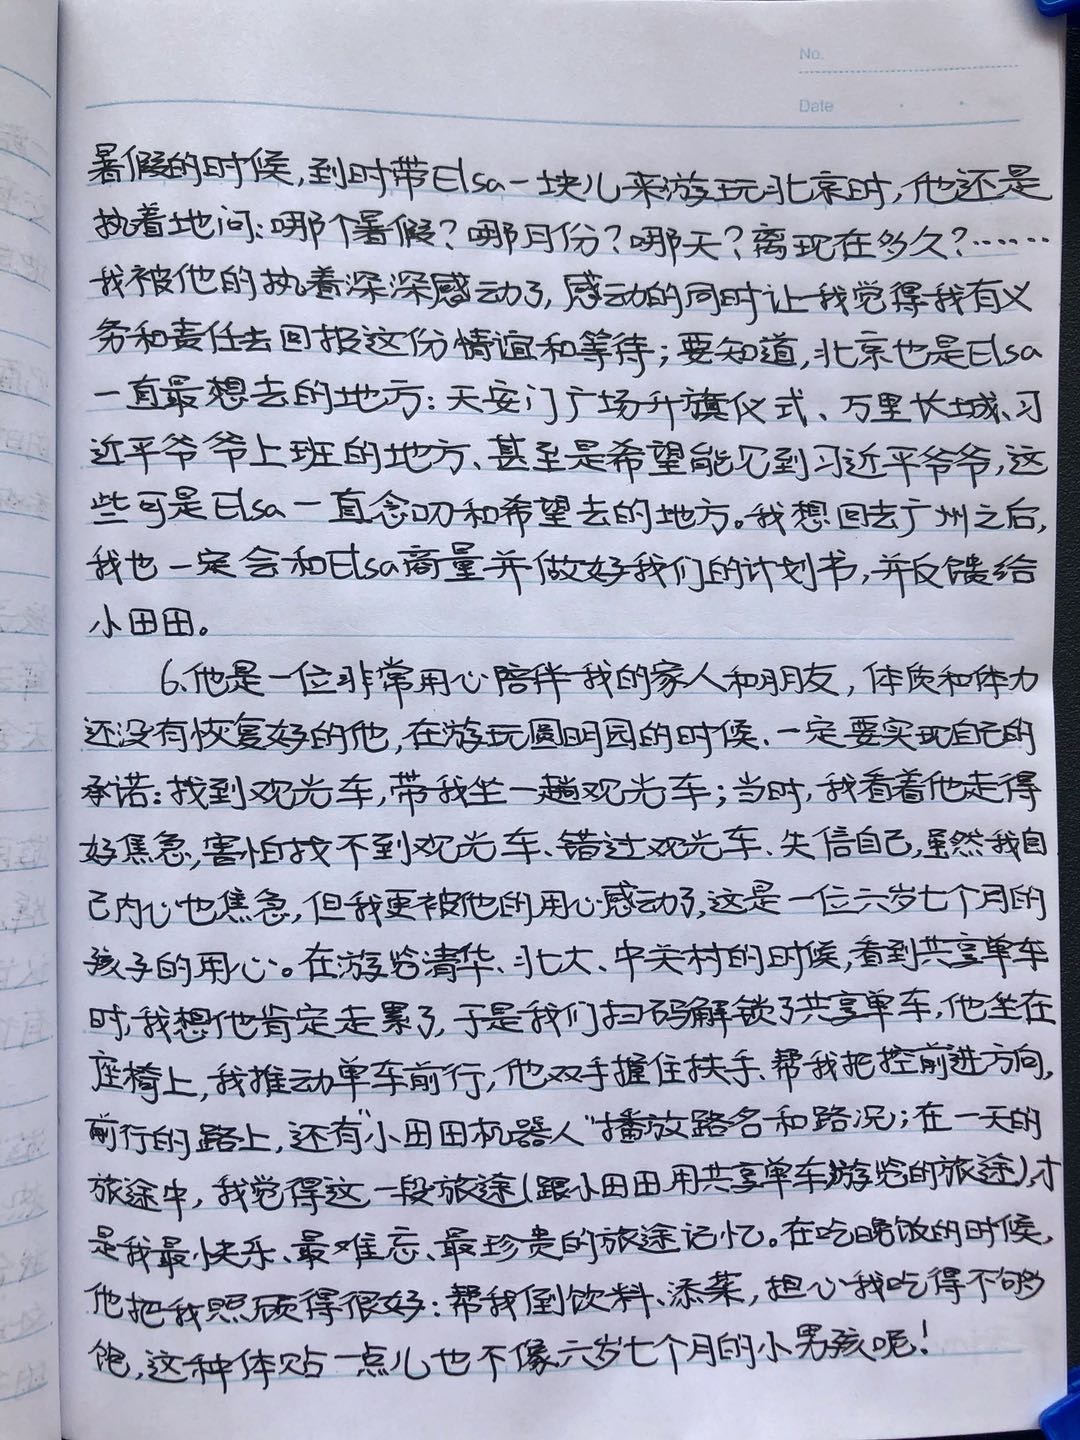 No.
Date
暑假的时候,到时带Elsa一块儿来游玩北京时,他还是
执着地问:哪个暑假?哪月份?哪天?离现在多久?……
我被他的执着深深感动了,感动的同时让我觉得我有义
务和责任去回报这份情谊和等待;要知道,北京也是Elsa
一直最想去的地方:天安门广场升旗仪式、万里长城、习
近平爷爷上班的地方、甚至是希望能见到习近平爷爷,这
些可是Elsa一直念叨和希望去的地方。我想回去广州之后,
我也一定会和Elsa商量并做好我们的计划书,并反馈给
小田田。
6.他是一位非常用心陪伴我的家人和朋友,体质和体力
还没有恢复好的他,在游玩圆明园的时候、一定要实现自己的
承诺:找到观光车,带我坐一趟观光车;当时,我看着他走得
好焦急,害怕找不到观光车、错过观光车、失信自己,虽然我自
己内心也焦急,但我更被他的用心感动了,这是一位六岁七个月的
孩子的用心。在游览清华、北大、中关村的时候,看到共享单车
时,我想他肯定走累了,于是我们扫码解锁了共享单车,他坐在
座椅上,我推动单车前行,他双手握住扶手、帮我把控前进方向,
前行的路上,还有"小田田机器人"播放路名和路况;在一天的
旅途中,我觉得这一段旅途(跟小田田用共享单车游览的旅途),才
是我最快乐、最难忘、最珍贵的旅途记忆。在吃晚饭的时候,
他把我照顾得很好:帮我倒饮料、添菜,担心我吃得不够
饱,这种体贴一点儿也不像六岁七个月的小男孩呢!